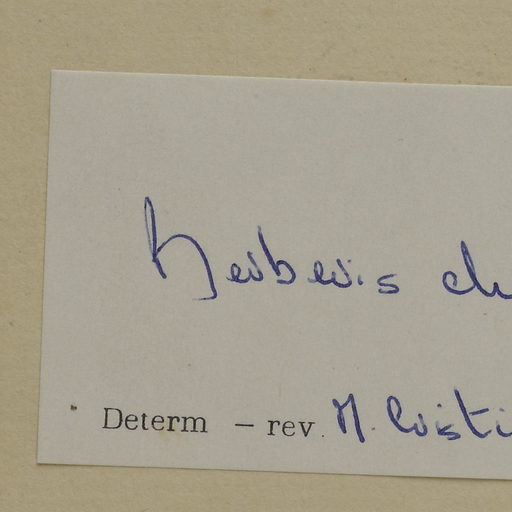 Berberis ch
Determ – rev. M. Cristi